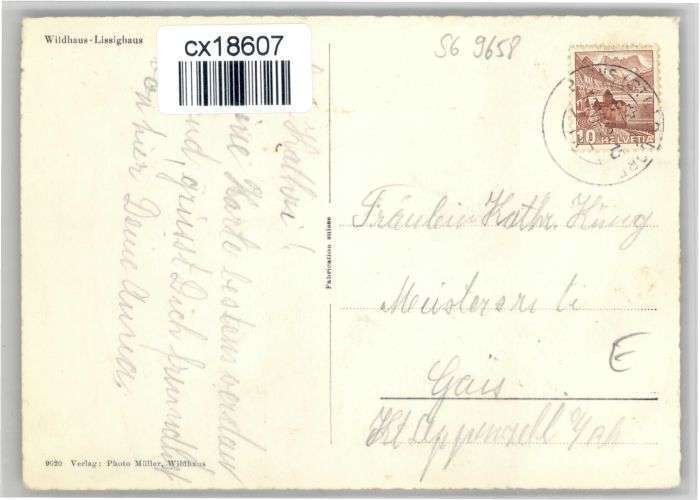 Wildhaus-Lissighaus
cx18607
SG 9658
10 HELVETIA
Kathri!
ine Karte bestens verdan
und, grüsst Dich freundlich
von hier Deine Anna.
Fabrication suisse
Fräulein Kathr. Küng
Gais
Kt Appenzell A/Rh
E
9020 Verlag: Photo Müller, Wildhaus